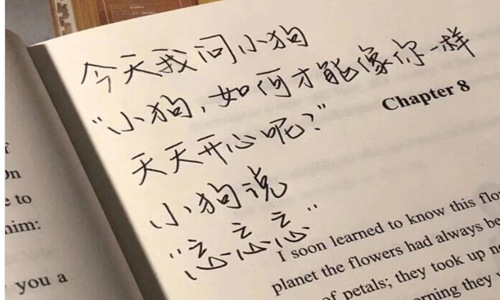 今天我问小狗
"小狗，如何才能像你一样
天天开心呢？"
小狗说
"忘忘忘"
Chapter 8
I soon learned to know this flo
planet the flowers had always be
of petals; they took up no
ning they w
of
on
e to
him:
you a